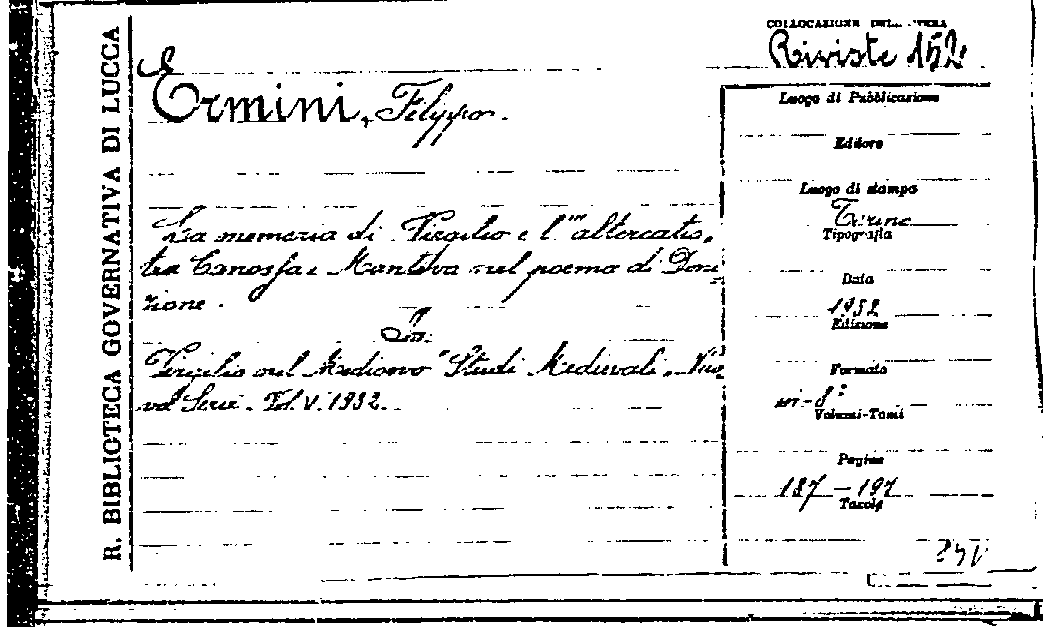 R. BIBLIOTECA GOVERNATIVA DI LUCCA
COLLOCAZIONE
Riviste 152
E
Ermini, Filippo.
La memoria di Virgilio e l'"altercatio„
tra Canossa e Mantova nel poema di Doni-
zione.
In:
Virgilio nel Medioevo "Studi Medievali„ Nuo-
va Serie. Vol. V. 1932.
Luogo di Pubblicazione
Editore
Luogo di stampa
Torino
Tipografia
Data
1932
Edizione
Formato
in-8°
Volumi-Tomi
Pagine
187-197
Tavole